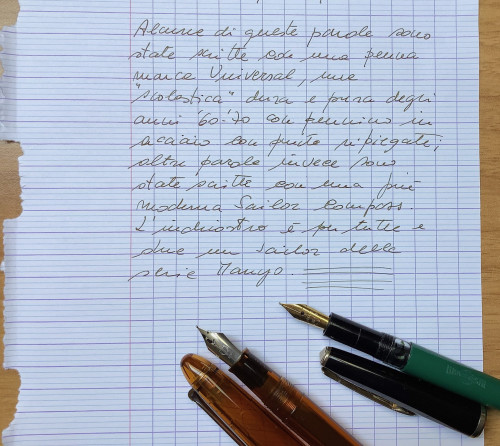 Alcune di queste parole sono
state scritte con una penna
marca Universal, una
"scolastica" dura e pura degli
anni '60-'70 con pennino in
acciaio con punte ripiegate;
altre parole invece sono
state scritte con una più
moderna Sailor Compass.
L'inchiostro è per tutte e
due un Sailor della
serie Manyo.